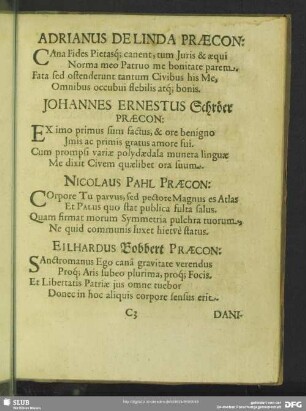 ADRIANUS DE LINDA PRÆCON:
CAna Fides Pietasq; canent, tum Juris & æqui
Norma meo Patruo me bonitate parem.
Fata sed ostenderunt tantum Civibus his Me,
Omnibus occubui flebilis atq; bonis.
JOHANNES ERNESTUS Schröer
PRÆCON:
EX imo primus sum factus, & ore benigno
Imis ac primis gratus amore fui.
Cum prompsi variæ polydædala munera linguæ
Me dixit Civem quælibet ora suum.
NICOLAUS PAHL PRÆCON:
COrpore Tu parvus, sed pectore Magnus es Atlas
Et PALUS quo stat publica fulta salus.
Quam firmat morum Symmetria pulchra tuorum,
Ne quid communis luxet hietvè status.
EILHARDUS Lobbert PRÆCON:
SAnctromanus Ego canâ gravitate verendus
Proq; Aris subeo plurima, proq; Focis.
Et Libertatis Patriæ jus omne tuebor
Donec in hoc aliquis corpore sensus erit.
C3
DANI-
SLUB
DFG